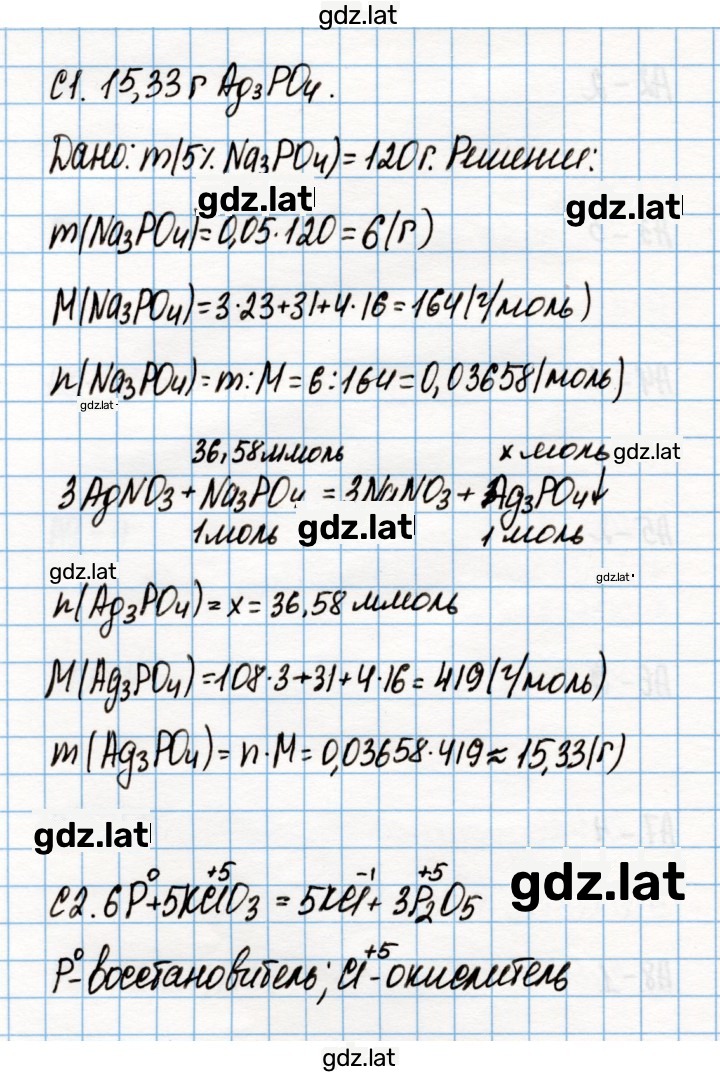 gdz.lat
С1. 15,33 г Ag₃PO₄.
Дано: m(5% Na₃PO₄) = 120 г. Решение:
gdz.lat
gdz.lat
m(Na₃PO₄) = 0,05·120 = 6 (г)
M(Na₃PO₄) = 3·23+31+4·16 = 164 (г/моль)
n(Na₃PO₄) = m:M = 6:164 = 0,03658 (моль)
gdz.lat
36,58 ммоль x моль gdz.lat
3AgNO₃ + Na₃PO₄ = 3NaNO₃ + Ag₃PO₄↓
1 моль gdz.lat 1 моль
gdz.lat
gdz.lat
n(Ag₃PO₄) = x = 36,58 ммоль
M(Ag₃PO₄) = 108·3+31+4·16 = 419 (г/моль)
m(Ag₃PO₄) = n·M = 0,03658·419 ≈ 15,33 (г)
gdz.lat
gdz.lat
0 +5 -1 +5
С2. 6P + 5KClO₃ = 5KCl + 3P₂O₅
P⁰ - восстановитель; Cl⁺⁵ - окислитель
gdz.lat